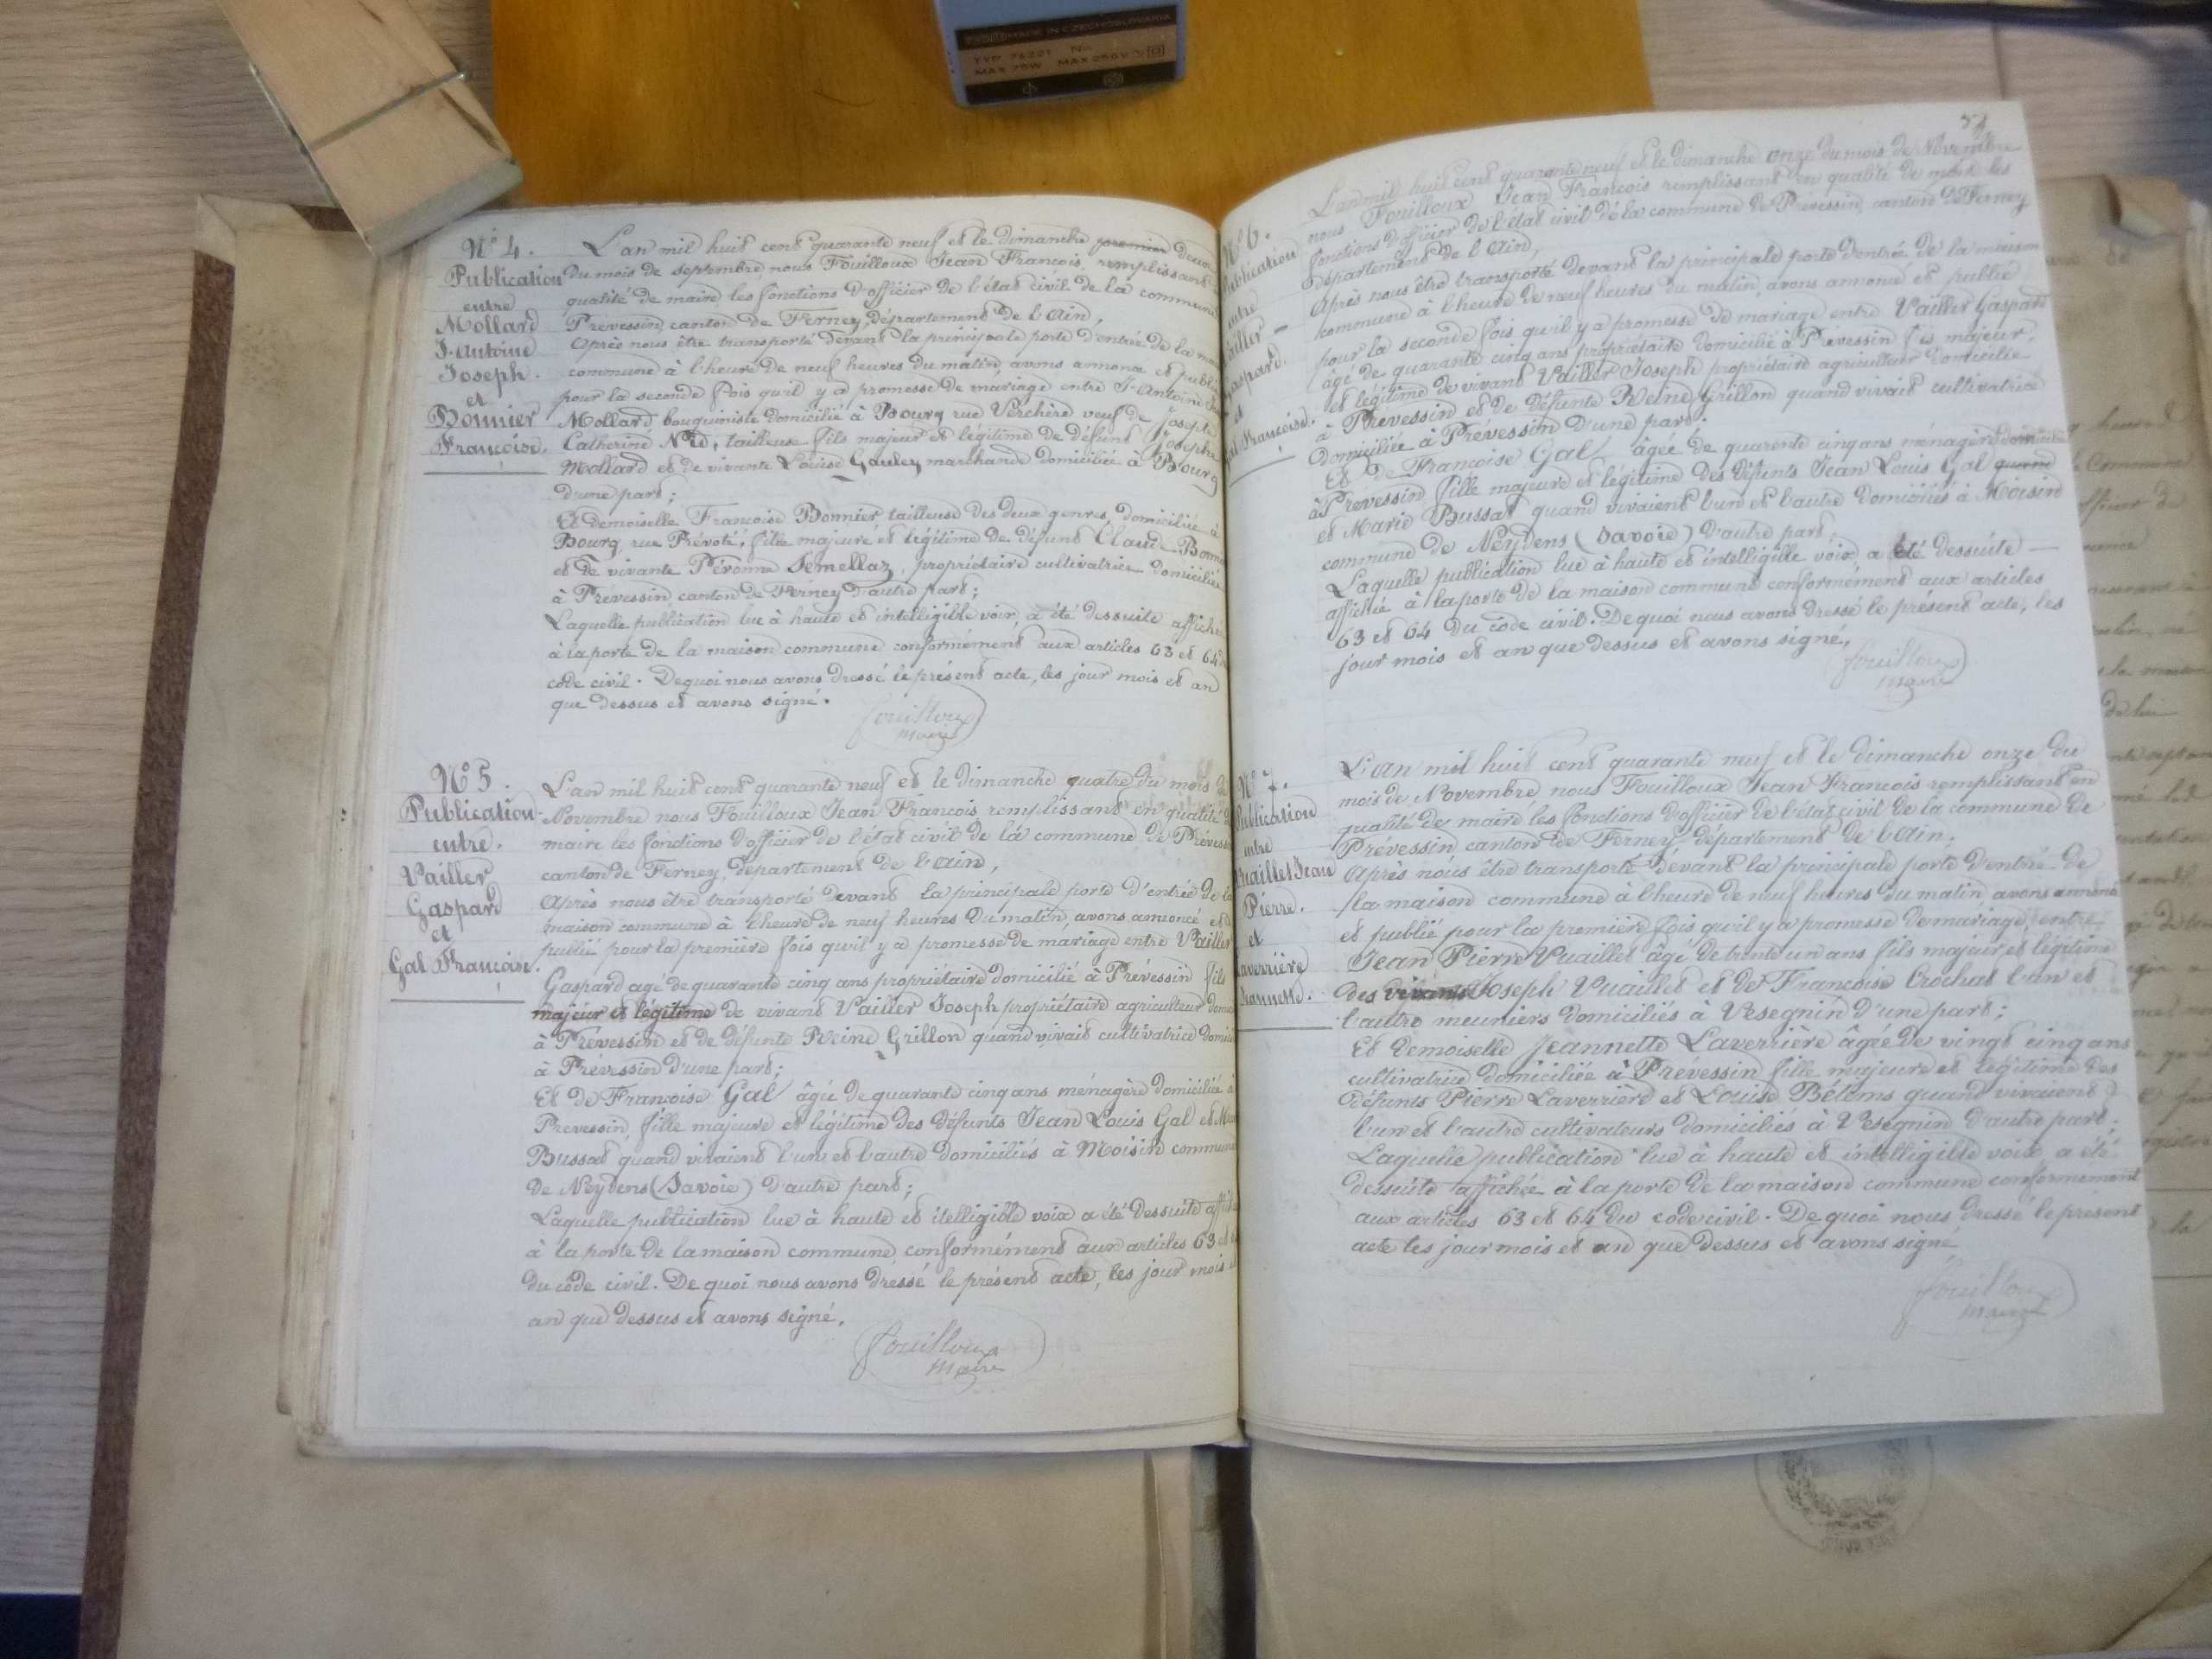 MADE IN CZECHOSLOVAKIA
TYP 76221 No.
MAX 75W MAX 250V
N° 4.
Publication
entre
Mollard
J. Antoine
Joseph.
et
Bonnier
Françoise.
L'an mil huit cent quarante neuf et le dimanche premier deux
du mois de septembre nous Fouilloux Jean François, remplissant
qualité de maire les fonctions d'officier de l'état civil de la commune
Prévessin, canton de Ferney, département de l'Ain,
Après nous être transporté devant la principale porte d'entrée de la
commune à l'heure de neuf heures du matin, avons annoncé et publié
pour la seconde fois qu'il y a promesse de mariage entre J. Antoine
Mollard bouquiniste domicilié à Bourg rue Verchère veuf de Josephte
Catherine tailleuse fils majeur et légitime de défunt Joseph
Mollard et de vivante Louise Gauley marchande domiciliée à Bourg
d'une part;
Et demoiselle Françoise Bonnier tailleuse des deux genres domiciliée à
Bourg, rue Prévoté, fille majeure et légitime de défunt Claude Bonnier
et de vivante Péronne Semellaz, propriétaire cultivatrice domiciliée
à Prévessin canton de Ferney d'autre part;
Laquelle publication lue à haute et intelligible voix, a été dessuite affichée
à la porte de la maison commune conformément aux articles 63 et 64 du
code civil. De quoi nous avons dressé le présent acte, les jour mois et an
que dessus et avons signé.
Fouilloux
maire
N° 5.
Publication
entre.
Vailler
Gaspard
et
Gal Françoise.
L'an mil huit cent quarante neuf et le dimanche quatre du mois de
Novembre nous Fouilloux Jean François remplissant en qualité de
maire les fonctions d'officier de l'état civil de la commune de Prévessin
canton de Ferney, département de l'Ain,
Après nous être transporté devant la principale porte d'entrée de la
maison commune à l'heure de neuf heures du matin, avons annoncé et
publié pour la première fois qu'il y a promesse de mariage entre Vailler
Gaspard agé de quarante cinq ans propriétaire domicilié à Prévessin fils
majeur et légitime de vivant Vailler Joseph propriétaire agriculteur
à Prévessin et de défunte Reine Grillon quand vivait cultivatrice
à Prévessin d'une part;
Et de Françoise Gal âgée de quarante cinq ans ménagère domiciliée à
Prevessin, fille majeure et légitime des défunts Jean Louis Gal et
Bussat quand vivaient l'un et l'autre domiciliés à Moisin commune
de Neydens (Savoie) d'autre part;
Laquelle publication lue à haute et itelligible voix a été dessuite
à la porte de la maison commune conformément aux articles 63 et
du code civil. De quoi nous avons dressé le présent acte, les jour mois
an que dessus et avons signé.
Fouilloux
Maire
N° 6.
Publication
entre
Vailler
Gaspard.
et
Gal Françoise.
L'an mil huit cent quarante neuf et le dimanche onze du mois de Novembre
nous Fouilloux Jean François remplissant en qualité de maire les
fonctions d'officier de l'état civil de la commune de Prevessin canton de Ferney
département de l'Ain,
Après nous être transporté devant la principale porte d'entrée de la maison
commune à l'heure de neuf heures du matin, avons annoncé et publié
pour la seconde fois qu'il y a promesse de mariage entre Vailler Gaspard
âgé de quarante cinq ans propriétaire domicilié à Prévessin fils majeur,
et légitime de vivant Vailler Joseph propriétaire agriculteur domicilié
à Prevessin et de défunte Reine Grillon quand vivait cultivatrice
domiciliée à Prévessin d'une part;
Et de Françoise Gal, âgée de quarante cinq ans ménagère domiciliée
à Prevessin fille majeure et légitime des défunts Jean Louis Gal quand
et Marie Bussat quand vivaient l'un et l'autre domiciliés à Moisin
commune de Neydens (Savoie) d'autre part;
Laquelle publication lue à haute et intelligille voix a été dessuite
affichée à la porte de la maison commune conformément aux articles
63 et 64 du code civil. De quoi nous avons dressé le présent acte, les
jour mois et an que dessus et avons signé,
Fouilloux
maire
N° 7.
Publication
entre
Vuaillet Jean
Pierre.
et
Laverrière
Jeannette.
L'an mil huit cent quarante neuf et le dimanche onze du
mois de Novembre nous Fouilloux Jean François remplissant en
qualité de maire les fonctions d'officier de l'état civil de la commune de
Prévessin canton de Ferney département de l'Ain;
Après nous être transporté devant la principale porte d'entrée de
la maison commune à l'heure de neuf heures du matin, avons annoncé
et publié pour la première fois qu'il y a promesse de mariage, entre
Jean Pierre Vuaillet âgé de trente un ans fils majeur et légitime
des vivants Joseph Vuaillet et de Françoise Crochat l'un et
l'autre meuniers domiciliés à Vesegnin d'une part;
Et demoiselle Jeannette Laverrière âgée de vingt cinq ans
cultivatrice domiciliée à Prévessin fille majeure et légitime des
défunts Pierre Laverrière et Louise Bétems quand vivaient
l'un et l'autre cultivateurs domiciliés à Vesegnin d'autre part;
Laquelle publication lue à haute et intelligille voix a été
dessuite affichée à la porte de la maison commune conformément
aux articles 63 et 64 du code civil. De quoi nous dressé le présent
acte les jour mois et an que dessus et avons signé
Fouilloux
maire